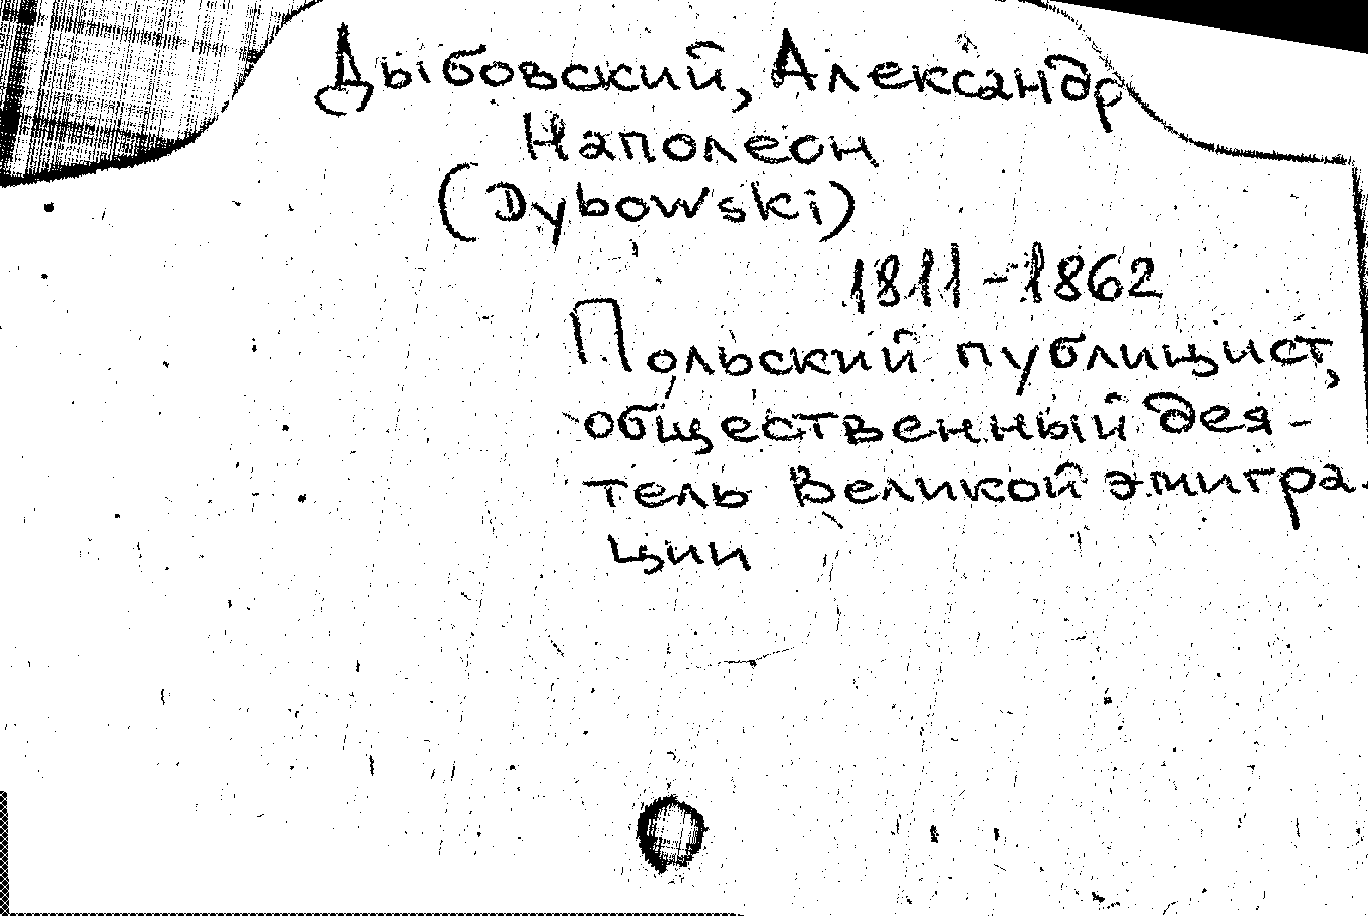 Дыбовский, Александр
Наполеон
(Dybowski)
1811-1862
Польский публицист,
общественный дея-
тель Великой эмигра-
ции